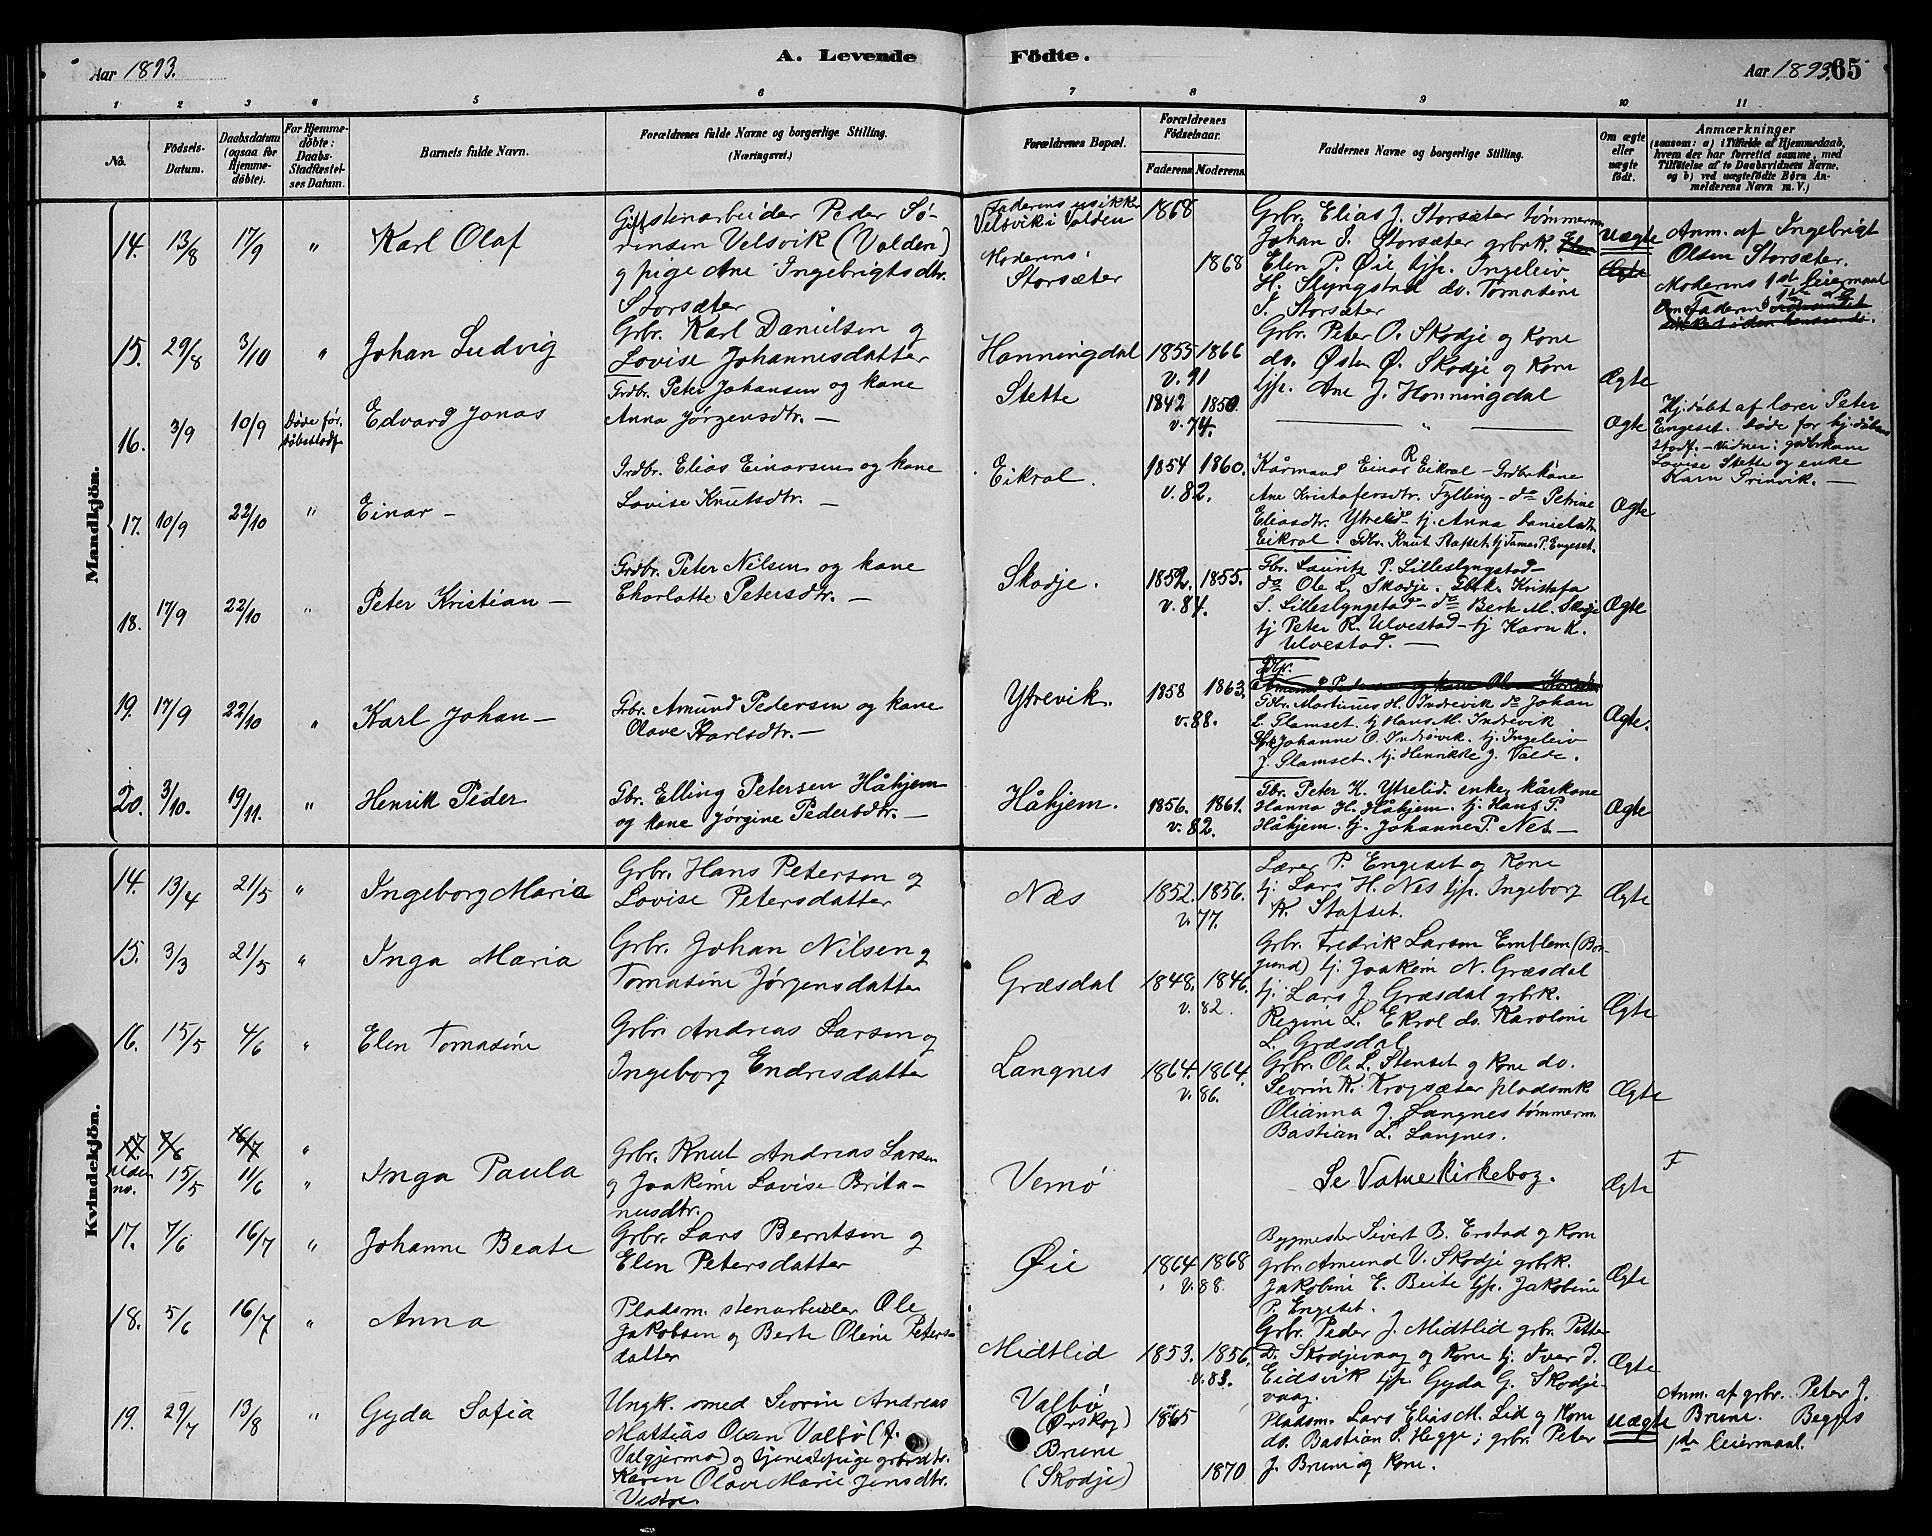 Aar 1893.
A. Levende Födte.
Aar 1893.
65
1 2 3 4 5 6 7 8 9 10 11
No.
Födsels-
Datum.
Daabsdatum
(ogsaa for
Hjemme-
döbte).
For Hjemme-
döbte:
Daabs-
Stadfæstel-
ses Datum.
Barnets fulde Navn.
Forældrenes fulde Navne og borgerlige Stilling.
(Næringsvei.)
Forældrenes Bopæl.
Forældrenes
Födselsaar.
Faderens.
Moderens.
Faddernes Navne og borgerlige Stilling.
Om ægte
eller
uægte
födt.
Anmærkninger
(saasom: a) i Tilfælde af Hjemmedaab,
hvem der har forrettet samme, med
Tilföielse af to Daabsvidners Navne,
og b) ved uægtefödte Börn An-
melderens Navn m. V.)
Mandkjön.
14. 13/8 17/9 " Karl Olaf
Gift stenarbeider Peder Sø-
rensen Velsvik (Valden)
og pige Ane Ingebrigtsdtr.
Storsæter
Faderens usikker
Velsvik i Valden
Moderens:
Storsæter
1868
1868
Grbr. Elias J. Storsæter tømmerm.
Johan I. Storsæter grbrk.
Elen P. Øie tjp. Ingeleiv
H. Slyngstad do. Tomasine
I. Storsæter
Uægte
Ægte
Anm. af Ingebrigt
Olsen Storsæter.
Moderens 1ste leiermaal
15. 29/8 3/10 " Johan Ludvig
Grbr. Karl Danielsen og
Lovise Johannesdatter
Honningdal
1855 1866
v. 91
Grbr. Peter O. Skodje og Kone
do. Østen Ø. Skodje og Kone
tjp. Ane J. Honningdal
Ægte
16. 3/9 10/9 Døde før
døbestadf. Edvard Jonas
Grdbr. Peter Johansen og kane
Anna Jørgensdtr. —
Stette
1842 1850.
v. 74.
— " —
Ægte
Hj. døbt af lærer Peter
Engeset. Døde før hj. dåbens
stadf. - Vidner: gardbrkane
Lovise Stette og enke
Karn Prinvik. —
17. 10/9 22/10 " Einar —
Grdbr. Elias Einarsen og kane
Lovise Knutsdtr. —
Eikrol.
1854 1860.
v. 82.
Kårmand Einar R Eikrol - Grdbrkåne
Ane Kristofersdtr. Fylling - do Petrine
Eliasdtr. Ytrelid - tj. Anna Danielsdtr
Eikrol. Gdbr. Knut Stafset. tj Tomas P. Engeset.
Ægte
18. 17/9 22/10 " Peter Kristian —
Grdbr. Peter Nilsen og kane
Charlotte Petersdtr. —
Skodje.
1852. 1855.
v. 84.
Gbr. Laurits P. Lilleslyngstad -
do Ole L. Skodje. Gbrk. Kristofa
S. Lilleslyngstad - do Berte M. Skodje
tj Peter R. Ulvestad - tj Karn K.
Ulvestad. —
Ægte
19. 17/9 22/10 " Karl Johan —
Grbr. Amund Pedersen og kane
Olave Karlsdtr. —
Ytrevik.
1858 1863.
v. 88.
Gdbr.
Amund Pedersen og kane Olave Karlsdtr
Gdbr. Martinus H. Indrevik do Johan
L. Slamset. tj Hans M. Indrevik
Johanne O. Indrevik. tj. Ingeleiv
J. Slamset. tj. Henrikke J. Valde.
Ægte.
20. 3/10. 19/11. " Henrik Peder
Gbr. Elling Petersen Håhjem
og kane Jørgine Pedersdtr. —
Håhjem.
1856. 1861.
v. 82.
Gbr. Peter K. Ytrelid. enke kårkone
Hanna H. Håhjem. tj. Hans P.
Håhjem. tj. Johanne P. Nes —
Ægte
Kvindekjön.
14. 13/4 21/5 " Ingeborg Maria
Grbr. Hans Peterson og
Lovise Petersdatter
Næs
1852. 1856.
v. 77.
Lærer P. Engeset og Kone
tj. Lars H. Nes tjp. Ingeborg
K. Stafset.
Ægte
15. 3/3 21/5 " Inga Maria
Grbr. Johan Nilsen og
Tomasine Jørgensdatter
Græsdal
1848. 1846.
v. 82.
Grbr. Fredrik Larsen Emblem (Bor-
gund) tj. Joakim N. Græsdal
tj. Lars J. Græsdal grbrk.
Regine L. Ekrol do. Karoline
L. Græsdal.
Ægte
16. 15/5 4/6 " Elen Tomasine
Grbr. Andreas Larsen og
Ingeborg Endresdatter
Langnes
1864. 1864.
v. 86.
Grbr. Ole L. Stenset og Kone do.
Severin K. Krogsæter pladsmk.
Olianna J. Langnes tømmerm.
Bastian L. Langnes.
Ægte
17. 7/6 16/7 "
Uden
no. 15/5 11/6 " Inga Paula
Grbr. Knut Andreas Larsen
og Joakime Lovise Brita-
nusdtr.
Vemø
Se Vatne Kirkebog.
Ægte
F
17. 7/6 16/7 " Johanne Beate
Grbr. Lars Berntsen og
Elen Petersdatter
Øie
1864 1868
v. 88.
Bygmester Sivert B. Erstad og Kone
Grbr. Amund V. Skodje grbrk.
Jakobine E. Beite tjp. Jakobine
P. Engeset.
Ægte
18. 5/6 16/7 " Anna
Pladsm. stenarbeider Ole
Jakobsen og Berte Oline Peters-
datter
Midtlid
1853. 1856.
v. 83.
Grbr. Peder J. Midtlid grbr. Petter
D. Skodjevaag og Kone tj. Iver J.
Eidsvik tjp. Gyda G. Skodje-
vaag.
Ægte
19. 29/7 13/8 " Gyda Sofia
Ungk. smed Severin Andreas
Mattias Olsen Valbø (f.
Valgjermo) og tjenestepige grbrdtr.
Karen Olave Marie Jensdtr.
Vestre
Valbø
(Ørskog)
Brune
(Skodje)
1865
1870
Pladsm. Lars Elias M. Lid og Kone
do. Bastian S. Hegge; grbr. Peter
J. Brune og Kone.
Uægte
Anm. af grbr. Peter J.
Brune. Begges
1ste leiermaal.